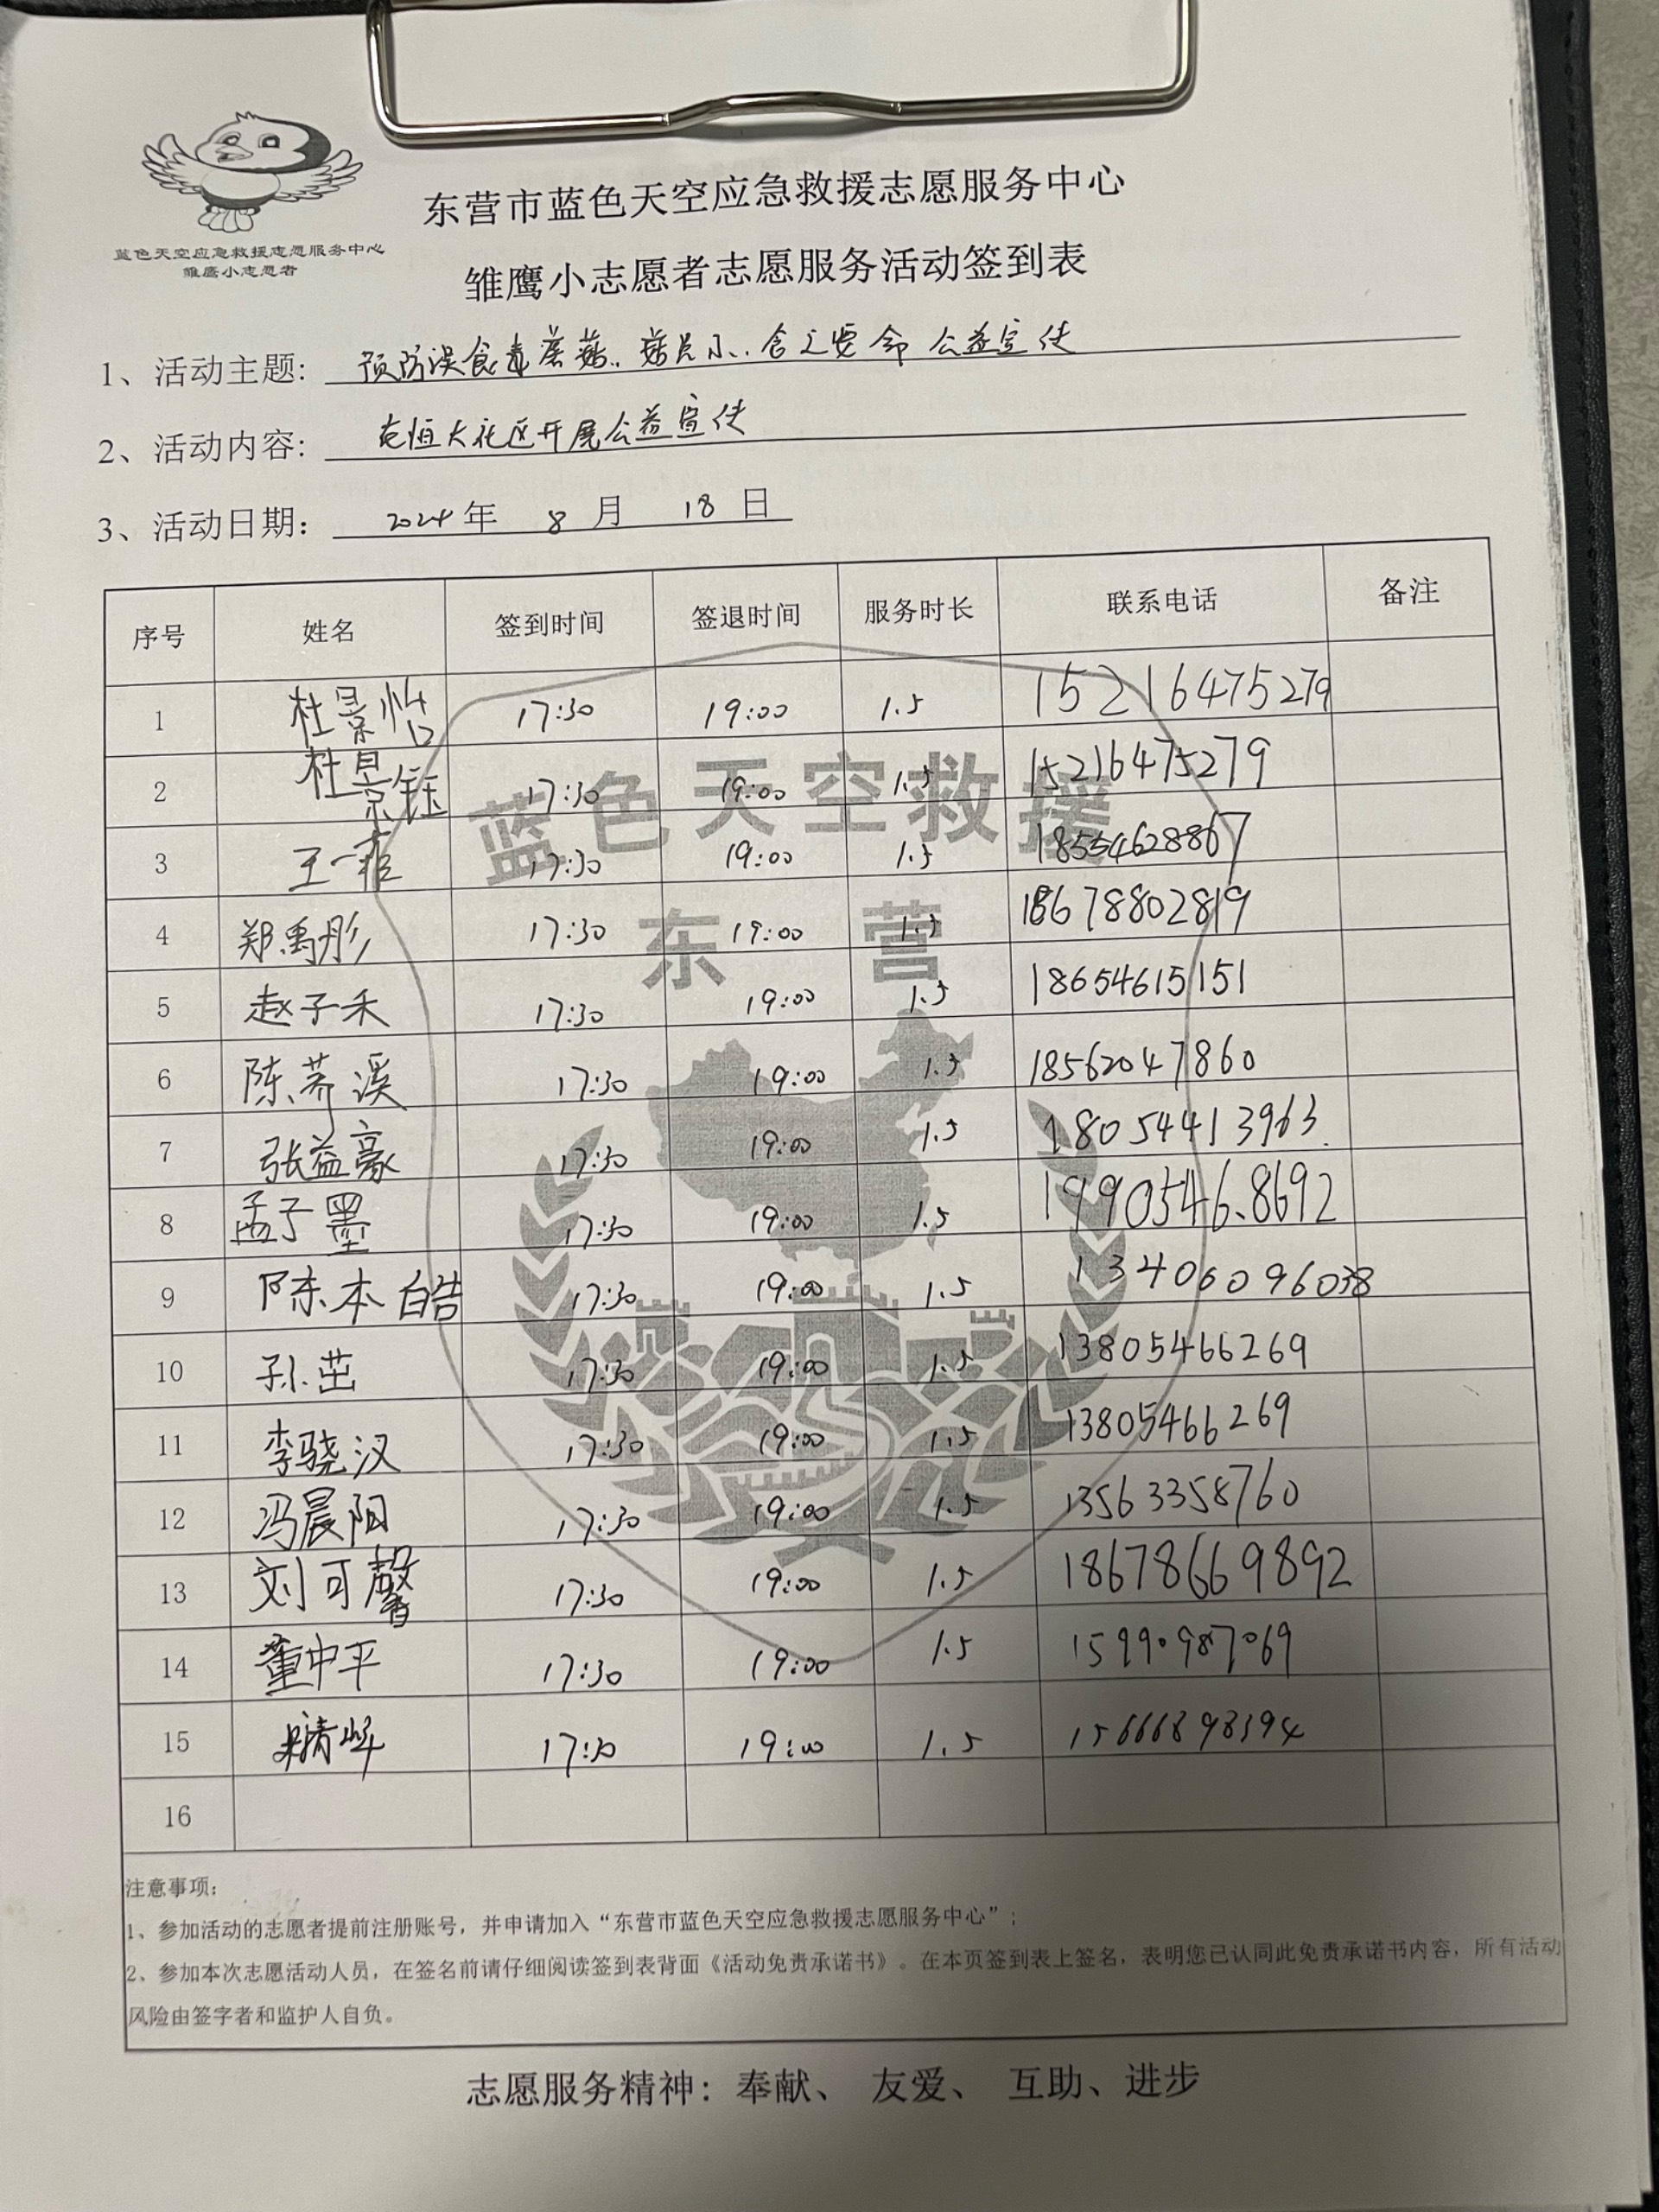 蓝色天空应急救援志愿服务中心
雏鹰小志愿者
东营市蓝色天空应急救援志愿服务中心
雏鹰小志愿者志愿服务活动签到表
1、活动主题: 预防误食毒蘑菇.. 菇 公益宣传
2、活动内容: 在恒大社区开展公益宣传
3、活动日期: 2024 年 8 月 18 日
序号 姓名 签到时间 签退时间 服务时长 联系电话 备注
1 杜景怡 17:30 19:00 1.5 15216475279
2 杜景钰 17:30 19:00 1.5 15216475279
3 王一 17:30 19:00 1.5 18554628867
4 郑禹彤 17:30 19:00 1.5 18678802819
5 赵子禾 17:30 19:00 1.5 18654615151
6 陈荞溪 17:30 19:00 1.5 18562047860
7 张益豪 17:30 19:00 1.5 18054413963
8 孟子墨 17:30 19:00 1.5 19905468692
9 陈本皓 17:30 19:00 1.5 13406096038
10 孙茁 17:30 19:00 1.5 13805466269
11 李骁汉 17:30 19:00 1.5 13805466269
12 冯晨阳 17:30 19:00 1.5 13563358760
13 刘可馨 17:30 19:00 1.5 18678669892
14 董中平 17:30 19:00 1.5 15990987069
15 17:30 19:00 1.5
16
蓝色天空救援
东营
注意事项:
1、参加活动的志愿者提前注册账号，并申请加入“东营市蓝色天空应急救援志愿服务中心”；
2、参加本次志愿活动人员，在签名前请仔细阅读签到表背面《活动免责承诺书》。在本页签到表上签名，表明您已认同此免责承诺书内容，所有活动
风险由签字者和监护人自负。
志愿服务精神: 奉献、 友爱、 互助、进步